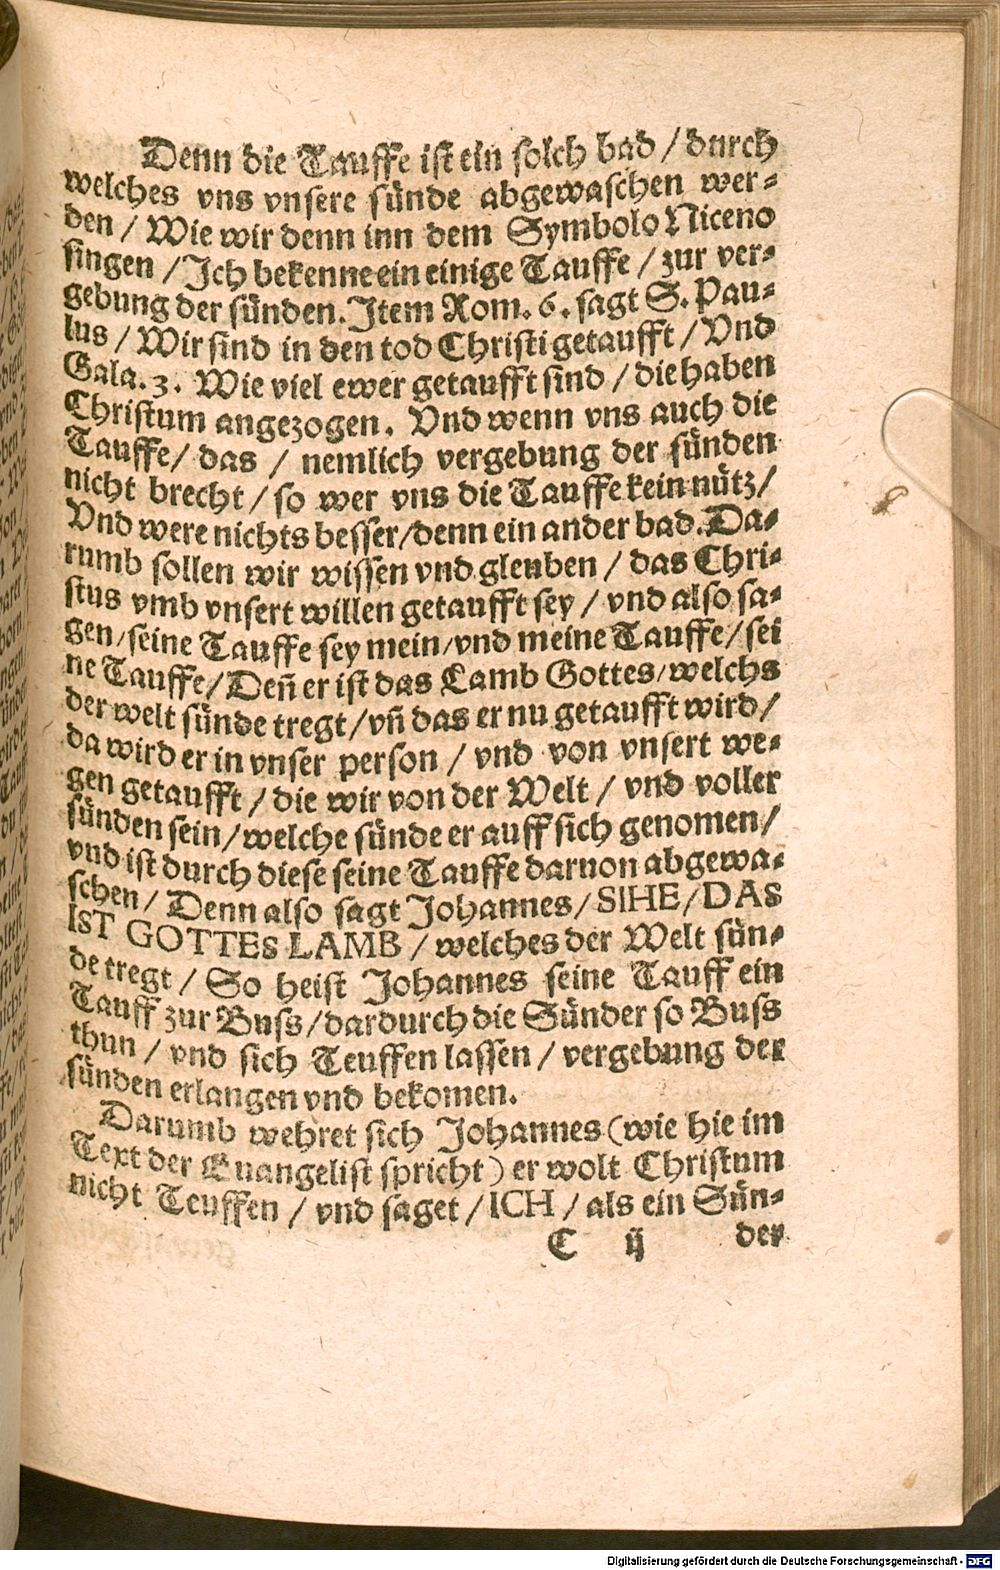 Denn die Tauffe ist ein solch bad / durch
welches vns vnsere sünde abgewaschen wer-
den / Wie wir denn inn dem Symbolo Niceno
singen / Ich bekenne ein einige Tauffe / zur ver-
gebung der sünden. Item Rom. 6. sagt S. Pau-
lus / Wir sind in den tod Christi getaufft / Vnd
Gala. 3. Wie viel ewer getaufft sind / die haben
Christum angezogen. Vnd wenn vns auch die
Tauffe / das / nemlich vergebung der sünden
nicht brecht / so wer vns die Tauffe kein nütz /
Vnd were nichts besser / denn ein ander bad. Da-
rumb sollen wir wissen vnd gleuben / das Chri-
stus vmb vnsert willen getaufft sey / vnd also sa-
gen / seine Tauffe sey mein / vnd meine Tauffe / sei
ne Tauffe / Deñ er ist das Lamb Gottes / welchs
der welt sünde tregt / vñ das er nu getaufft wird /
da wird er in vnser person / vnd von vnsert we-
gen getaufft / die wir von der Welt / vnd voller
sünden sein / welche sünde er auff sich genomen /
vnd ist durch diese seine Tauffe daruon abgewa-
schen / Denn also sagt Johannes / SIHE / DAS
IST GOTTES LAMB / welches der Welt sün-
de tregt / So heist Johannes seine Tauff ein
Tauff zur Buss / dardurch die Sünder so Buss
thun / vnd sich Teuffen lassen / vergebung der
sünden erlangen vnd bekomen.
Darumb wehret sich Johannes (wie hie im
Text der Euangelist spricht) er wolt Christum
nicht Teuffen / vnd saget / ICH / als ein Sün-
C ij der
Digitalisierung gefördert durch die Deutsche Forschungsgemeinschaft - DFG